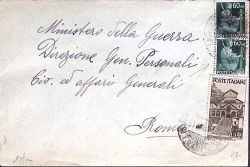 Ministero della Guerra
Direzione Gen. Personali
Civ. ed affari Generali
Roma
0.60
0.60
POSTE ITALIANE